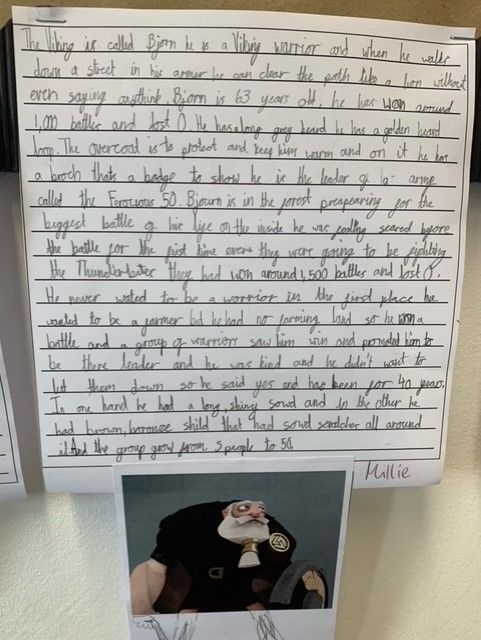 The Viking is called Bjorn he is a Viking warrior and when he walks
down a street in his armer he can clear the path like a lion without
even saying anythink. Bjorn is 63 years old, he has won around
1,000 battles and lost 0. He has a long grey beard he has a golden beard
loop. The overcoat is to protect and keep him warm and on it he has
a broch thats a badge to show he is the leader of a army
called the Ferocuous 50. Bjourn is in the forest preapearing for the
biggest battle of his life on the inside he was feallng scared before
the battle for the first time evere they were going to be fighting
the Thunderbiter they had won around 1,500 battles and lost 0.
He never wated to be a worrior in the first place he
wanted to be a farmer but he had no farming land so he won a
battle and a group of warriors saw him win and promoted him to
be there leader and he was kind and he didn't want to
let them down so he said yes and has been for 40 years.
In one hand he had a long, shiny sowd and in the other he
had brown, boronze shild that had sowd scratches all around
it. And the group grew from 5 people to 50.
Millie